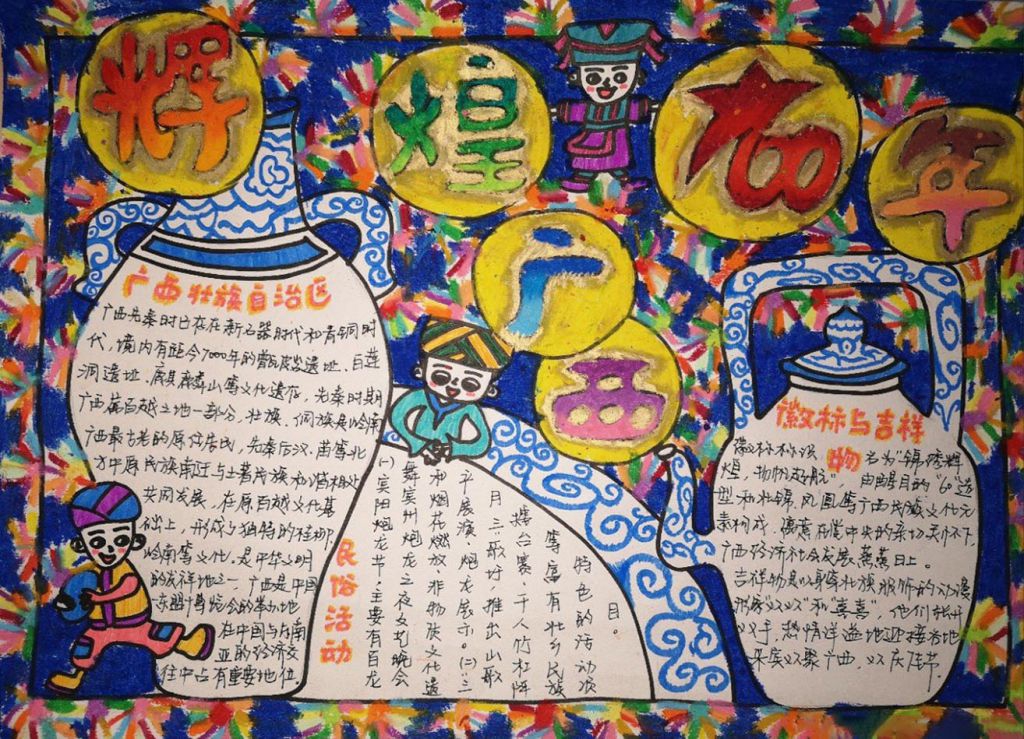 辉煌60年
广西
广西壮族自治区
广西先秦时已存在新石器时代和青铜时
代，境内有距今7000年的甑皮岩遗址、白莲
洞遗址、麒麟山等文化遗存，先秦时期
广西属百越土地一部分，壮族、侗族是岭南
广西最古老的原住居民，先秦后汉、苗等北
方中原民族南迁与土著民族和谐相处
共同发展，在原百越文化基
础上，形成了独特的桂柳
岭南等文化，是中华文明
的发祥地之一，广西是中国
东盟博览会的举办地
在中国与东南
亚的经济交
往中占有重要地位。
民俗活动
(一)宾阳炮龙节·主要有百龙
舞宾州、炮龙之夜文艺晚会
和烟花燃放、非物质文化遗
平展演、炮龙展示。(二)三
月三歌圩推出山歌
擂台赛、千人竹杠阵
等富有壮乡民族
特色的活动项
目。
徽标与吉祥
物
徽标标识名为"锦绣辉
煌，物帆起航" 由醒目的"60"造
型和壮锦、凤凰等广西民族文化元
素构成，寓意在党中央的亲切关怀下
广西经济社会发展蒸蒸日上。
吉祥物是以身穿壮族服饰的动漫
形象"双双"和"喜喜"，他们张开
双手，热情洋溢地迎接各地
来宾双聚广西，双庆佳节。